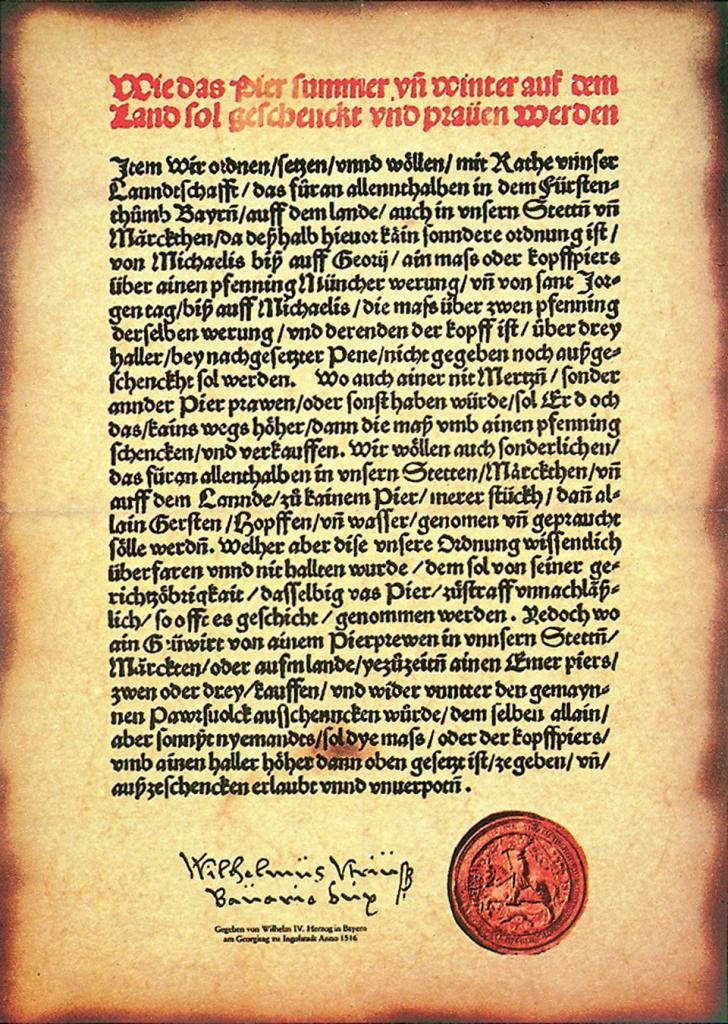 Wie das Pier summer vñ winter auf dem
Land sol geschenckt vnd praüen werden
Item Wir ordnen/setzen/vnnd wöllen/ mit Rathe vnnser
Lanndtschafft/ das füran allennthalben in dem Fürsten-
thümb Bayrñ/auff dem lande/ auch in vnsern Stettñ vñ
Märckthen/da deßhalb hieuor kain sonndere ordnung ist/
von Michaelis biß auff Georij/ ain mass oder kopffpiers
über ainen pfenning Müncher werung/ vñ von sant Jor-
gentag/biß auff Michaelis/ die mass über zwen pfenning
derselben werung/vnd derenden der kopff ist/ über drey
haller/bey nachgesetzter Pene/nicht gegeben noch außge-
schenckht sol werden. Wo auch ainer nit Mertzñ/ sonder
annder Pier prawen/oder sonst haben würde/sol Er doch
das/kains wegs höher/dann die maß vmb ainen pfenning
schencken/vnd verkauffen. Wir wöllen auch sonderlichen/
das füran allenthalben in vnsern Stetten/Märckthen/vñ
auff dem Lannde/zü kainem Pier/merer stückh/ dañ al-
lain Gersten/Hopffen/vñ wasser/genomen vñ gepraucht
sölle werdñ. Welher aber dise vnsere Ordnung wissentlich
überfaren vnnd nit hallten wurde/dem sol von seiner ge-
richtzöbrigkait/dasselbig vas Pier/züstraff vnnachläß-
lich/ so offt es geschicht/genommen werden. Yedoch wo
ain Geüwirt von ainem Pierprewen in vnnsern Stettñ/
Märckten/oder aufm lande/yezüzeitñ ainen Emer piers/
zwen oder drey/kauffen/ vnd wider vnntter den gemayn-
nen Pawrsuolck ausschenncken würde/dem selben allain/
aber sonnßt nyemandts/sol dye mass/ oder der kopffpiers/
vmb ainen haller höher dann oben gesetzt ist/zegeben/ vñ/
außzeschencken erlaubt vnnd vnuerpotñ.
Gegeben von Wilhelm IV. Herzog in Bayern
am Georgitag zu Ingolstadt Anno 1516